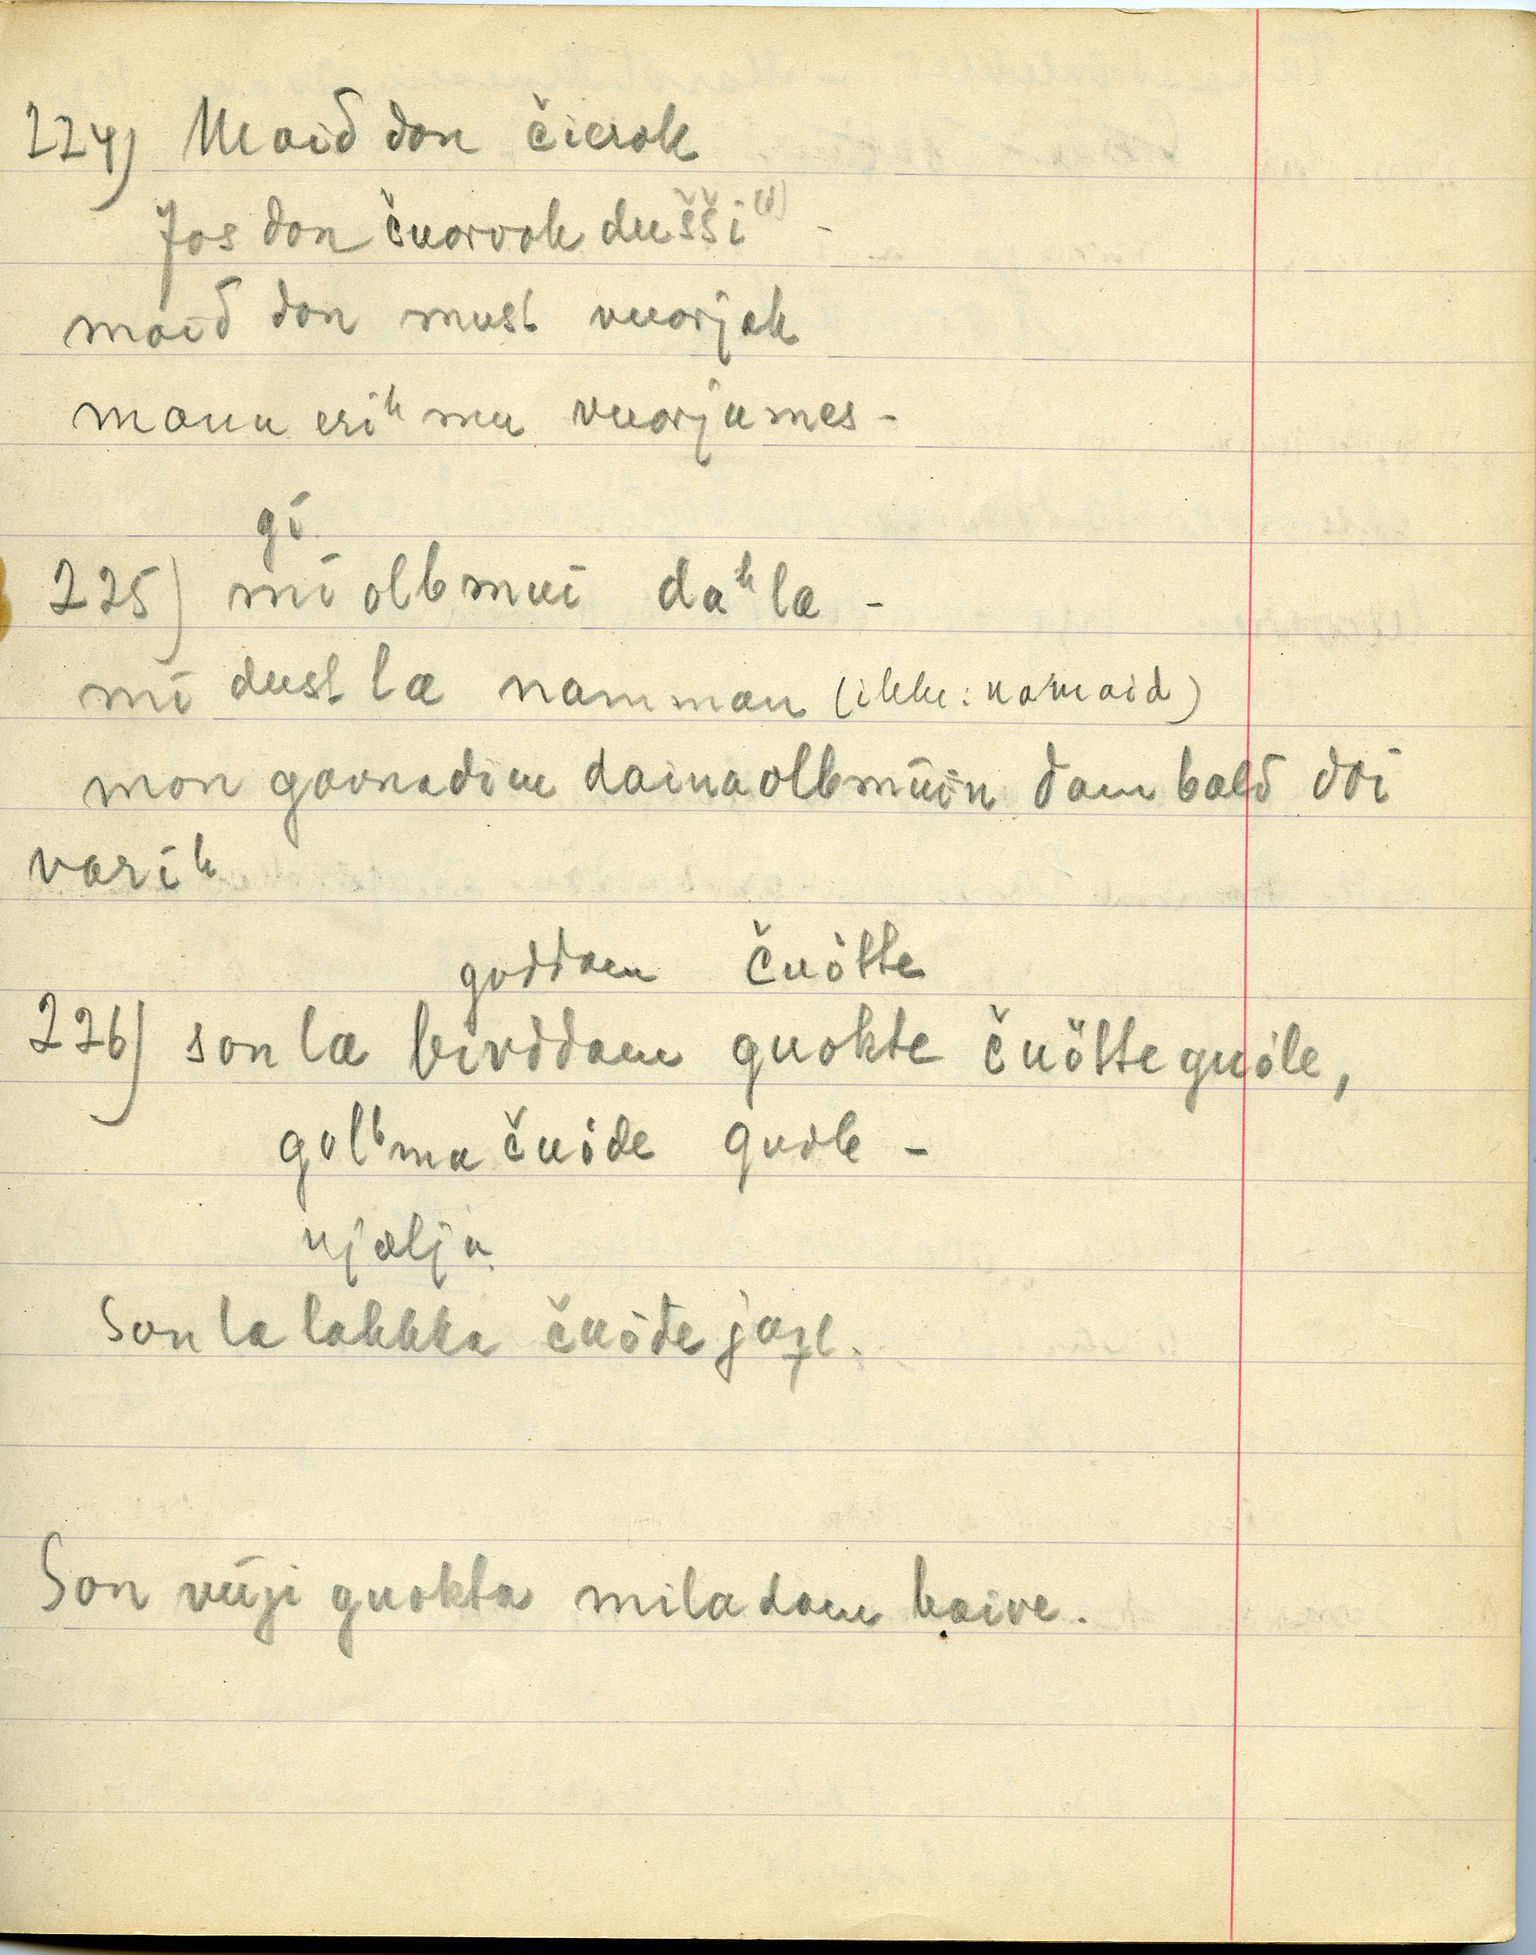 224) Maid don čierok
Jos don čuorvok dušši(d) -
maid don must vuorjak
manu erik mu vuorjumes -
gi
225) mi olbmui dahla -
mi dust læ namman (ikke: namaid)
mon gavnadim dainaolbmuin dam bald doi
varik
goddam čuötte
226) son læ bivddam guokte čuötte guole,
golbma čuöde guole -
njælja
Son la lakkka čuöde jage.
Son vuji guokta miladam baive.